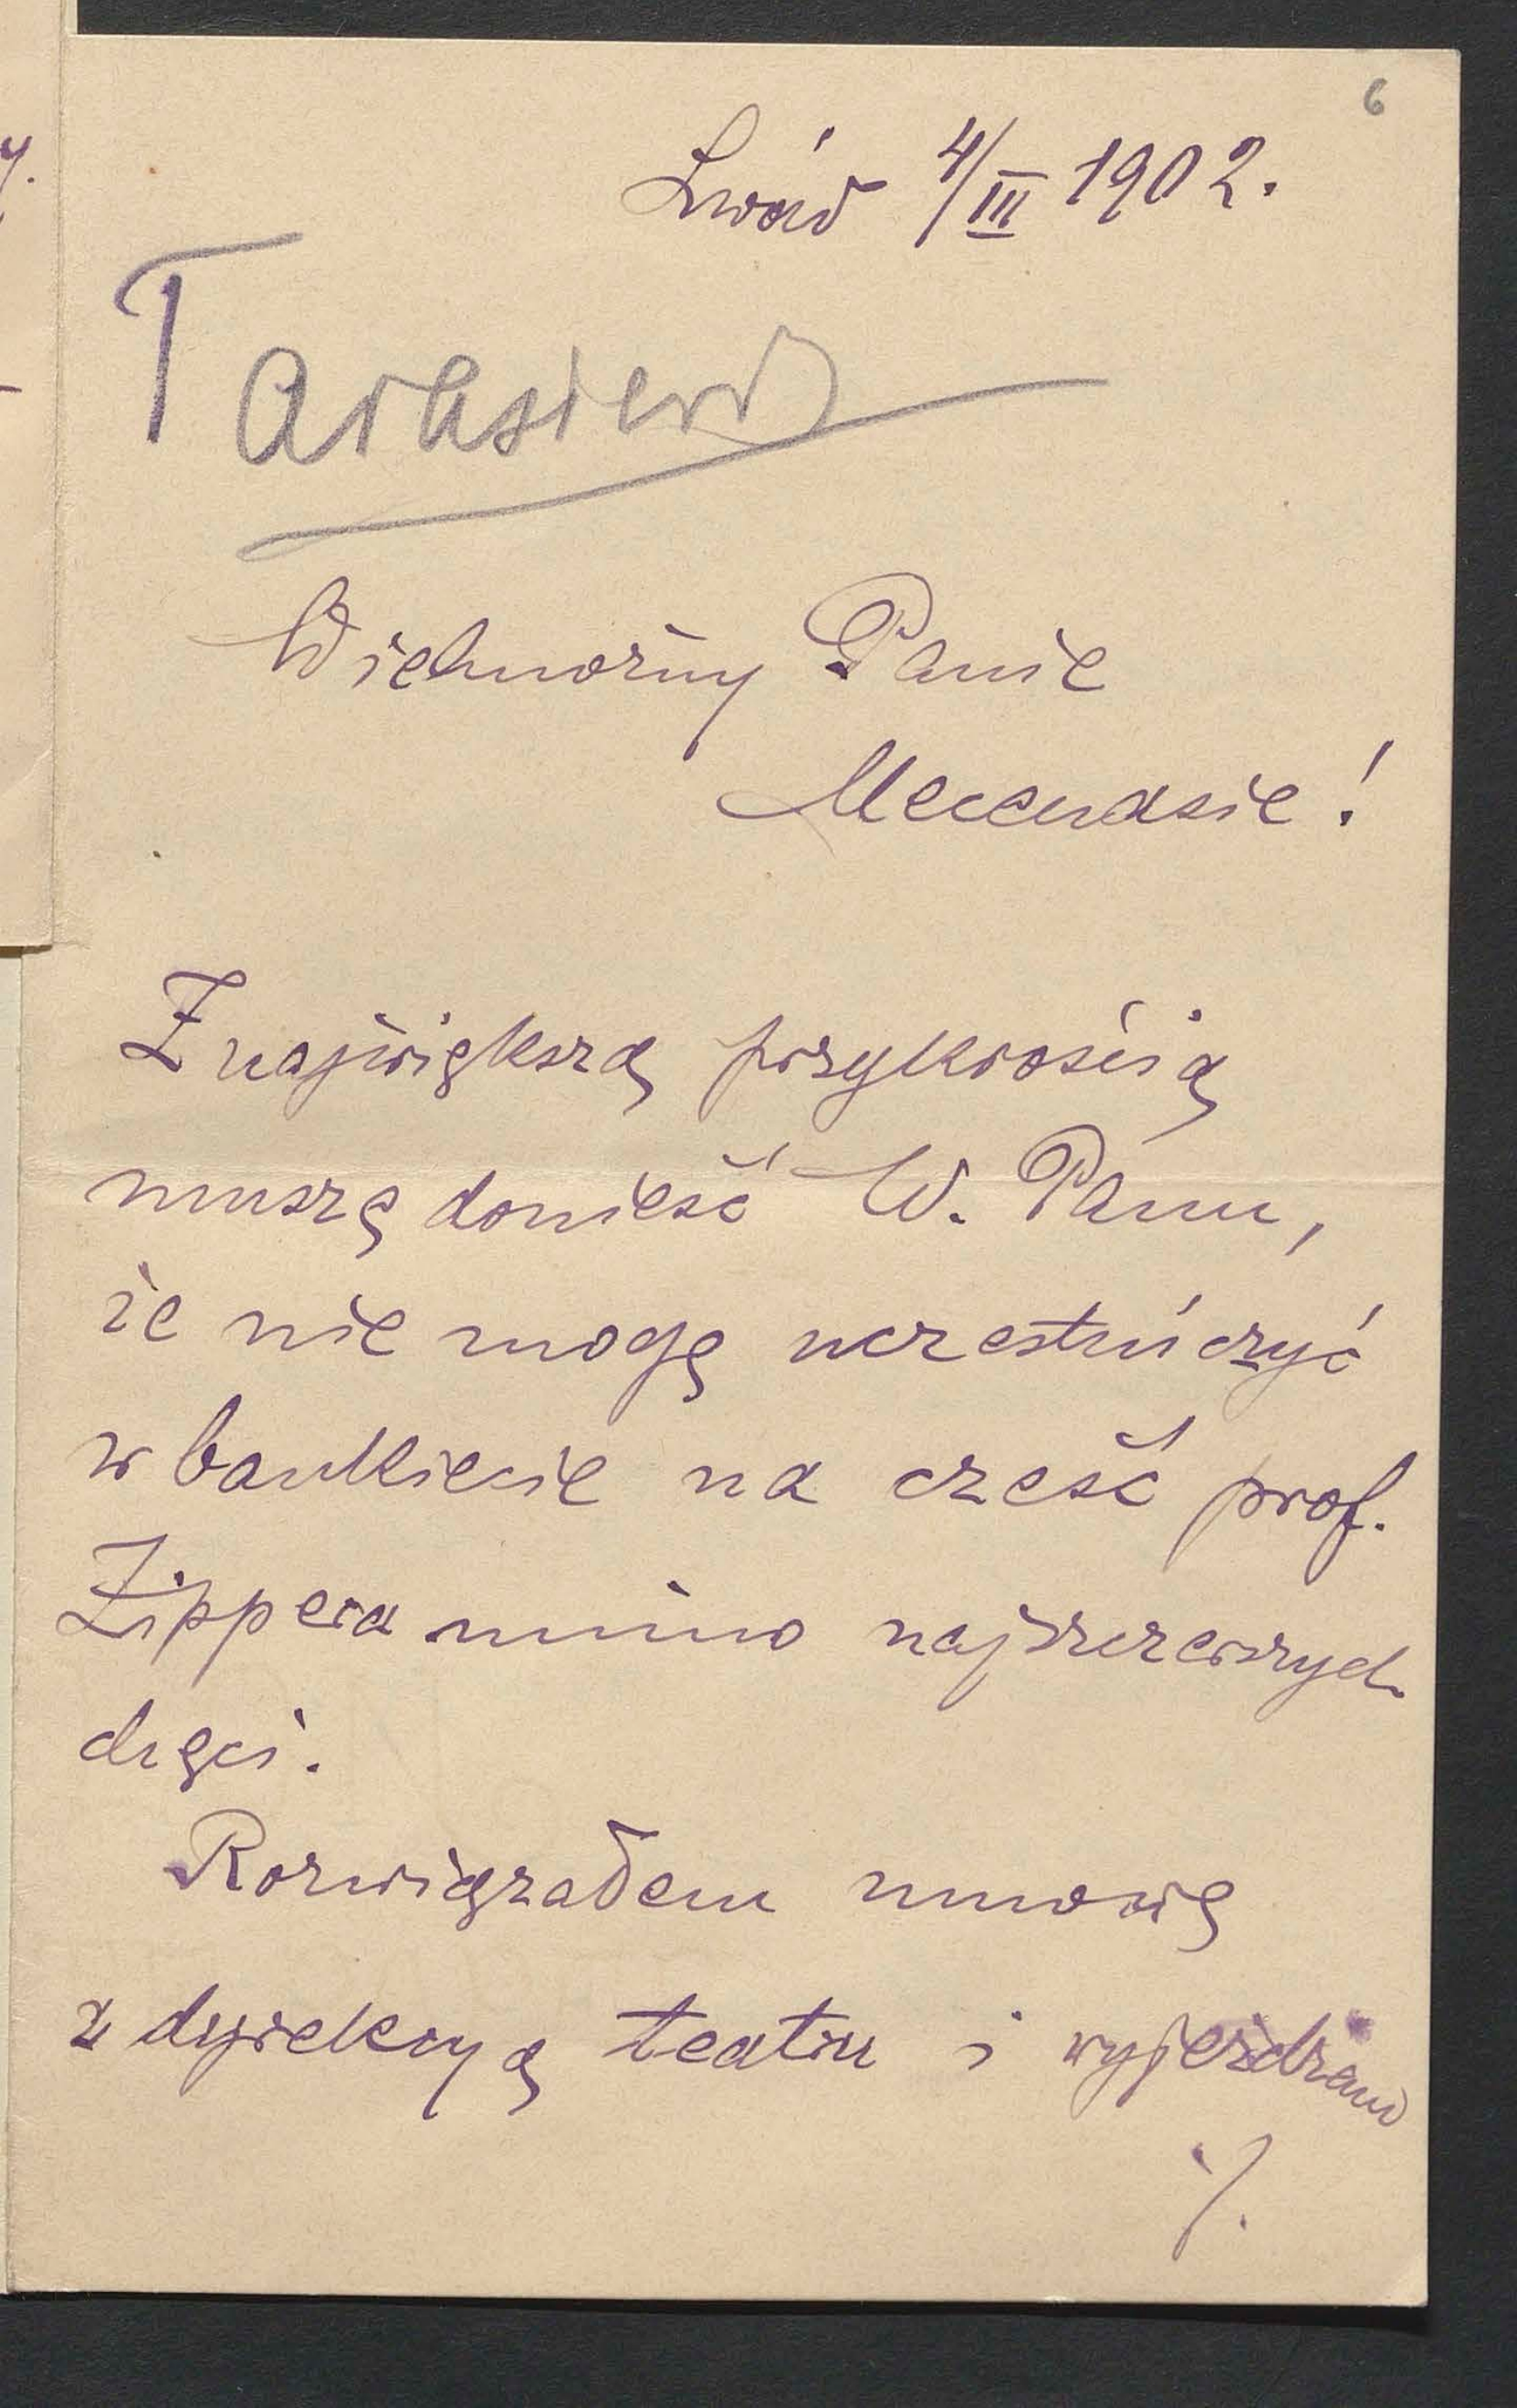 6
Lwów 4/III 1902.
Tarasiewicz
Wielmożny Panie
Mecenasie!
Z największą przykrością
muszę donieść W. Panu,
że nie mogę uczestniczyć
w bankiecie na cześć prof.
Zippera mimo najszczerszych
chęci.
Rozwiązałem umowę
z dyrekcyą teatru i wyjeżdżam
./.